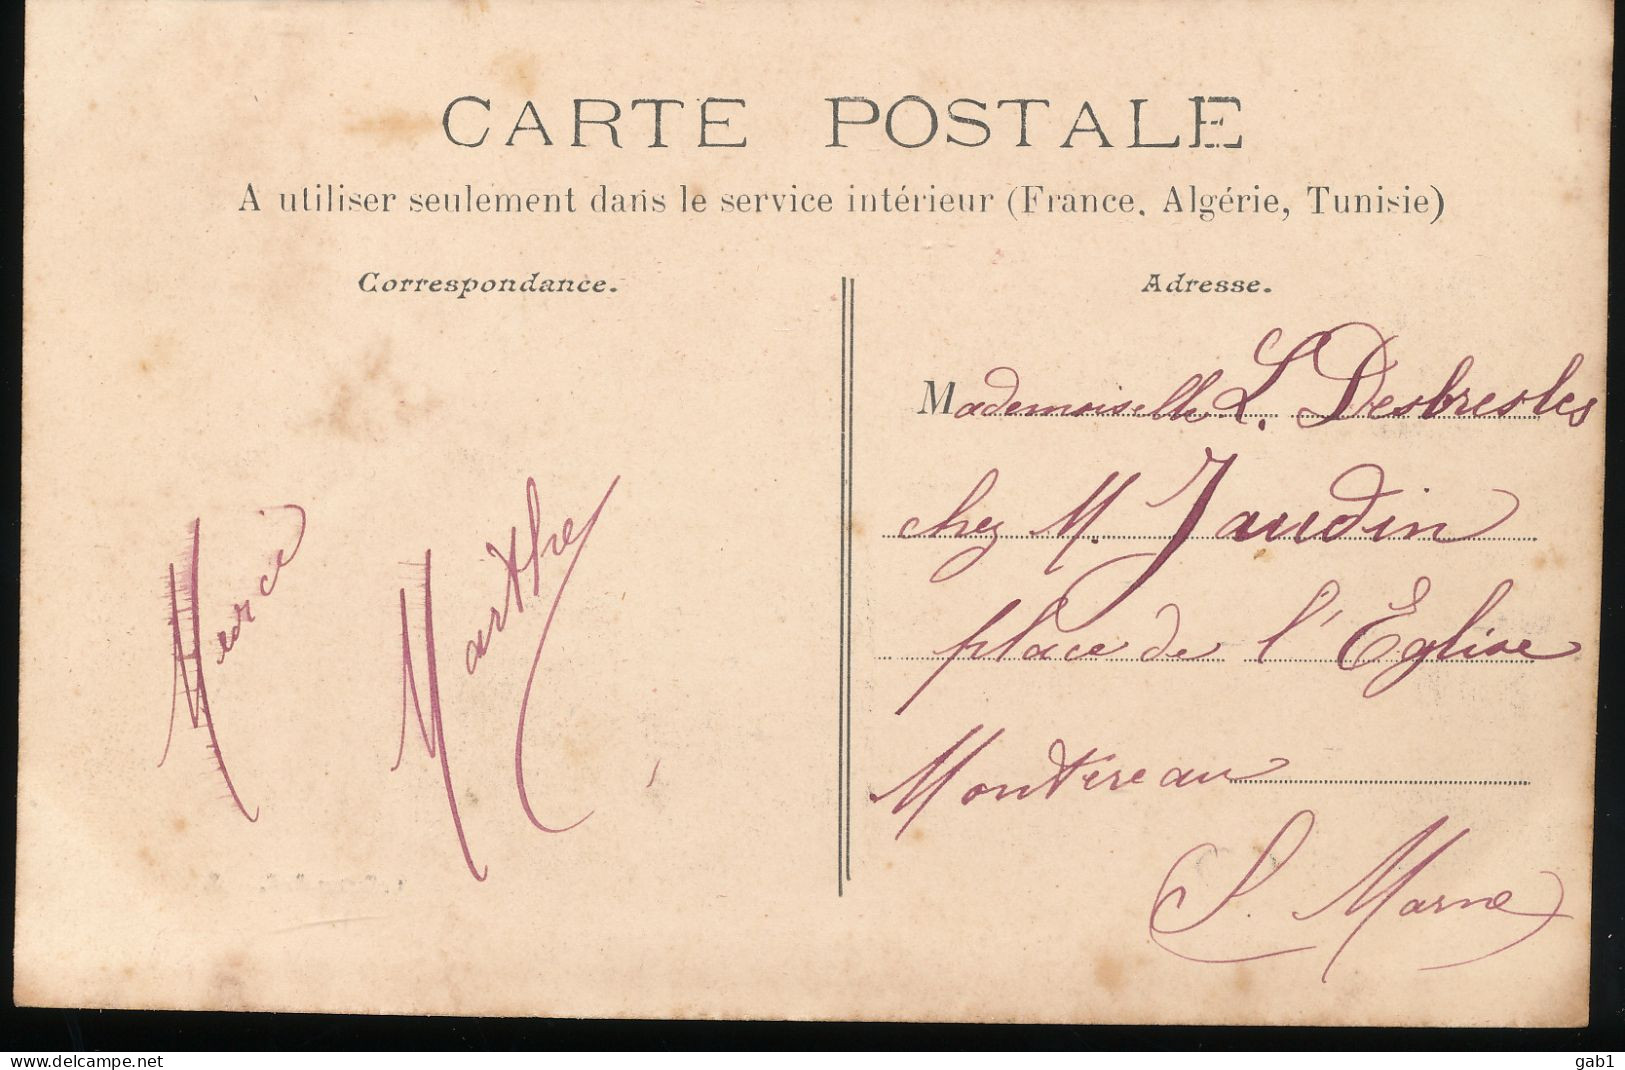 CARTE POSTALE
A utiliser seulement dans le service intérieur (France, Algérie, Tunisie)
Correspondance.
Merci
Marthe
Adresse.
Mademoiselle L. Desbresles
chez M. Jaudin
place de l'Eglise
Montereau
S. Marne
www.delcampe.net
gab1